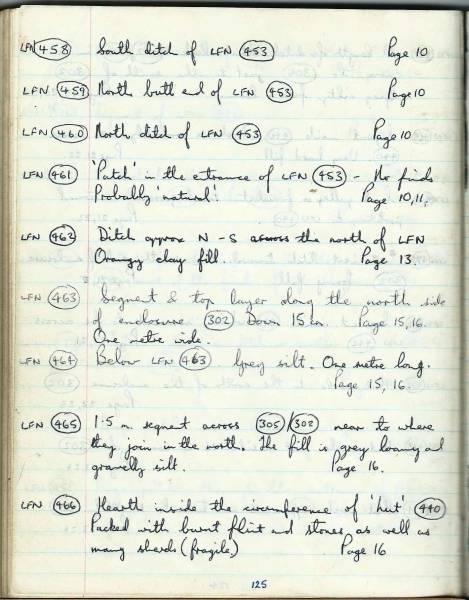 LFN 458 South ditch of LFN 453 Page 10
LFN 459 North butt end of LFN 453 Page 10
LFN 460 North ditch of LFN 453 Page 10
LFN 461 'Patch' in the entrance of LFN 453 - No finds
Probably 'natural' Page 10, 11,
LFN 462 Ditch approx N - S across the north of LFN
Orangy clay fill Page 13.
LFN 463 Segment & top layer along the north side
of enclosure 302 Down 15 cm. Page 15, 16.
One metre wide.
LFN 464 Below LFN 463 Grey silt. One metre long.
Page 15, 16.
LFN 465 1.5 m. segment across 305/302 near to where
they join in the north. The fill is grey loamy and
gravelly silt. Page 16.
LFN 466 Hearth inside the circumference of 'hut' 440
Packed with burnt flint and stones, as well as
many sherds (fragile) Page 16
125